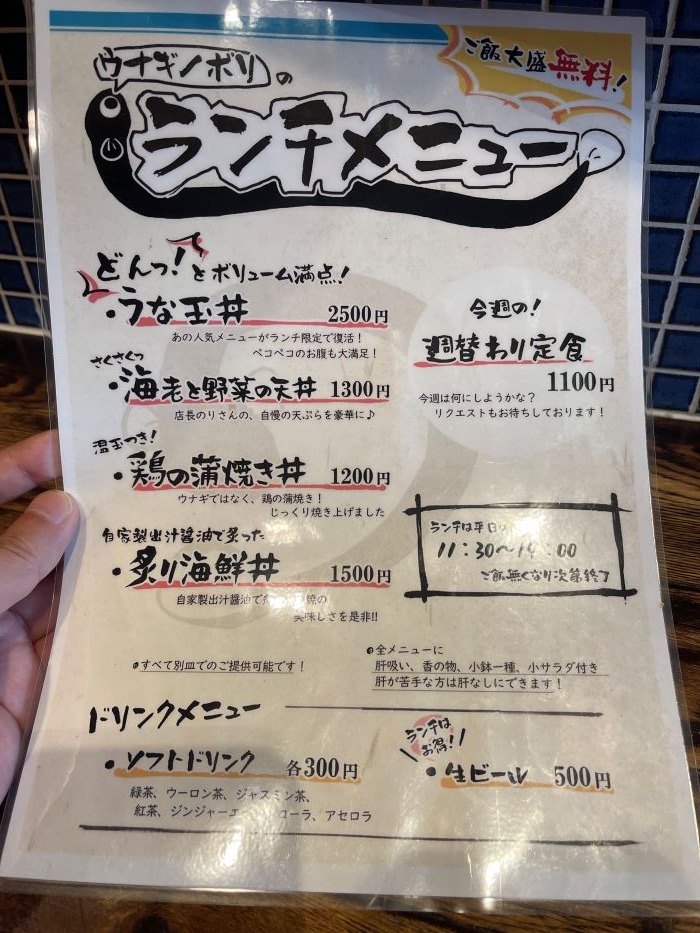 ウナギノボリの
ランチメニュー
ご飯大盛無料!
どんっ!とボリューム満点!
・うな玉丼 2500円
あの人気メニューがランチ限定で復活!
ペコペコのお腹も大満足!
さくさくっ
・海老と野菜の天丼 1300円
店長のりさんの、自慢の天ぷらを豪華に♪
温玉つき!
・鶏の蒲焼き丼 1200円
ウナギではなく、鶏の蒲焼き!
じっくり焼き上げました
自家製出汁醤油で炙った
・炙り海鮮丼 1500円
自家製出汁醤油で
美味しさを是非!!
今週の!
週替わり定食
1100円
今週は何にしようかな?
リクエストもお待ちしております!
ランチは平日
11:30〜14:00
ご飯無くなり次第終了
●すべて別皿でのご提供可能です!
●全メニューに
肝吸い、香の物、小鉢一種、小サラダ付き
肝が苦手な方は肝なしにできます!
ドリンクメニュー
・ソフトドリンク 各300円
緑茶、ウーロン茶、ジャスミン茶、
紅茶、ジンジャーエ コーラ、アセロラ
ランチは
お得!!
・生ビール 500円